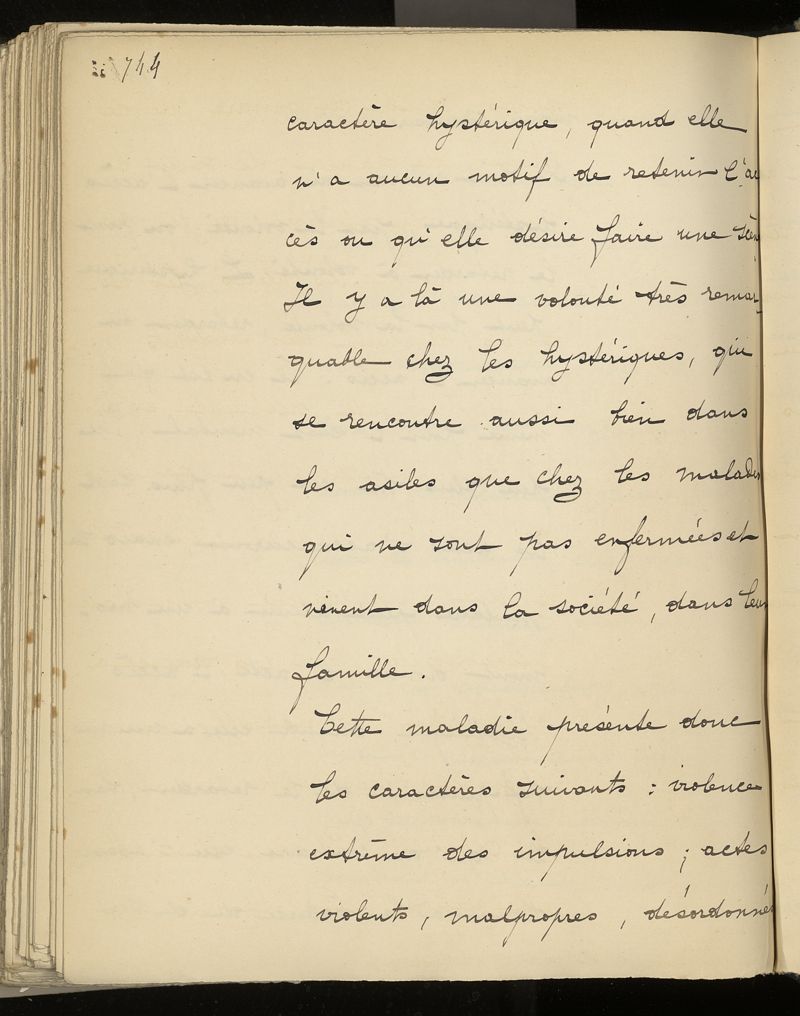 744
caractère hystérique, quand elle
n'a aucun motif de retenir l'ac
cès ou qu'elle désire faire une scèn
Il y a là une volonté très remar-
quable chez les hystériques, qui
se rencontre aussi bien dans
les asiles que chez les malades
qui ne sont pas enfermées et
vivent dans la société, dans leur
famille.
Cette maladie présente donc
les caractères suivants : violence
extrême des impulsions ; actes
violents, malpropres, désordonnés